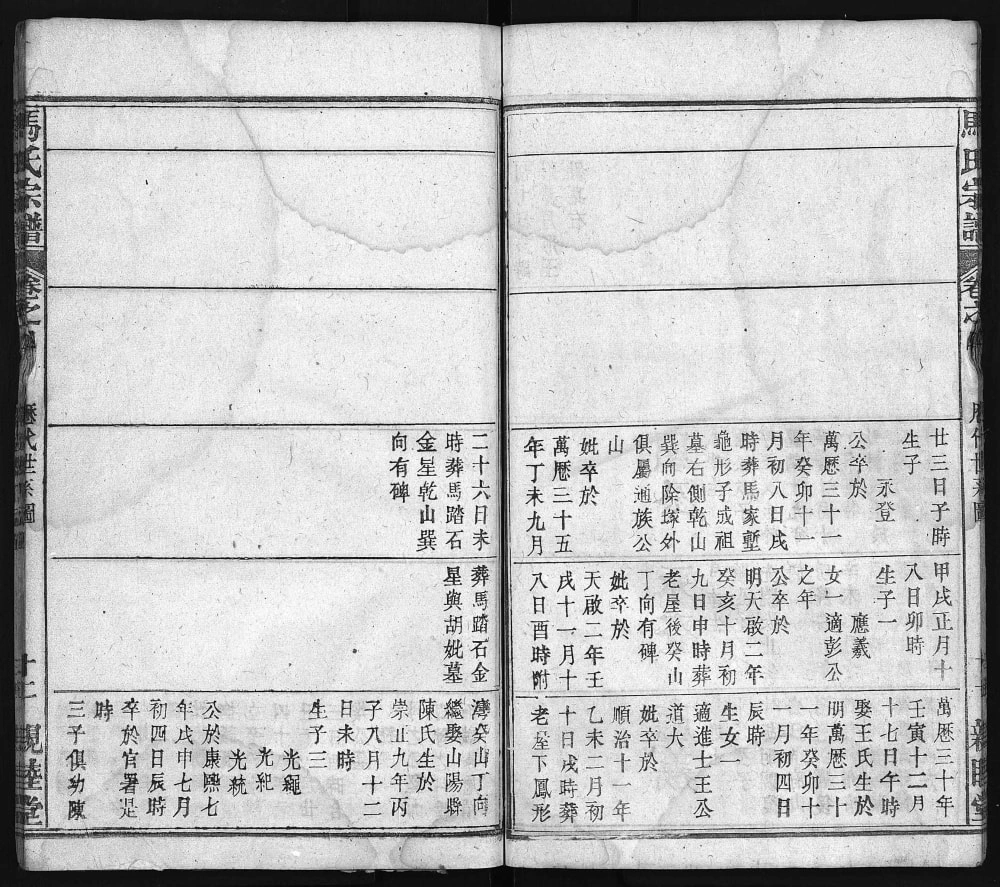 馬氏宗譜
卷之
廿三日子時
生子
永登
公卒於
萬厯三十一
年癸卯十一
月初八日戌
時葬馬家塹
龜形子成祖
墓右側乾山
巽向除塚外
俱屬通族公
山
妣卒於
萬厯三十五
年丁未九月
二十六日未
時葬馬踏石
金星乾山巽
向有碑
甲戌正月十
八日卯時
生子一
應羲
女一適彭公
之年
公卒於
明天啟二年
癸亥十月初
九日申時葬
老屋後癸山
丁向有碑
妣卒於
天啟二年壬
戌十一月十
八日酉時附
葬馬踏石金
星與胡妣墓
萬厯三十年
壬寅十二月
十七日午時
娶王氏生於
明萬厯三十
一年癸卯十
一月初四日
辰時
生女一
適進士王公
道大
妣卒於
順治十一年
乙未二月初
十日戌時葬
老屋下鳳形
灣癸山丁向
繼娶山陽縣
陳氏生於
崇正九年丙
子八月十二
日未時
生子三
光繩
光紀
光統
公於康熙七
年戊申七月
初四日辰時
卒於官署是
時
三子俱幼陳
馬氏宗譜
卷之
歷代世系圖
親睦堂